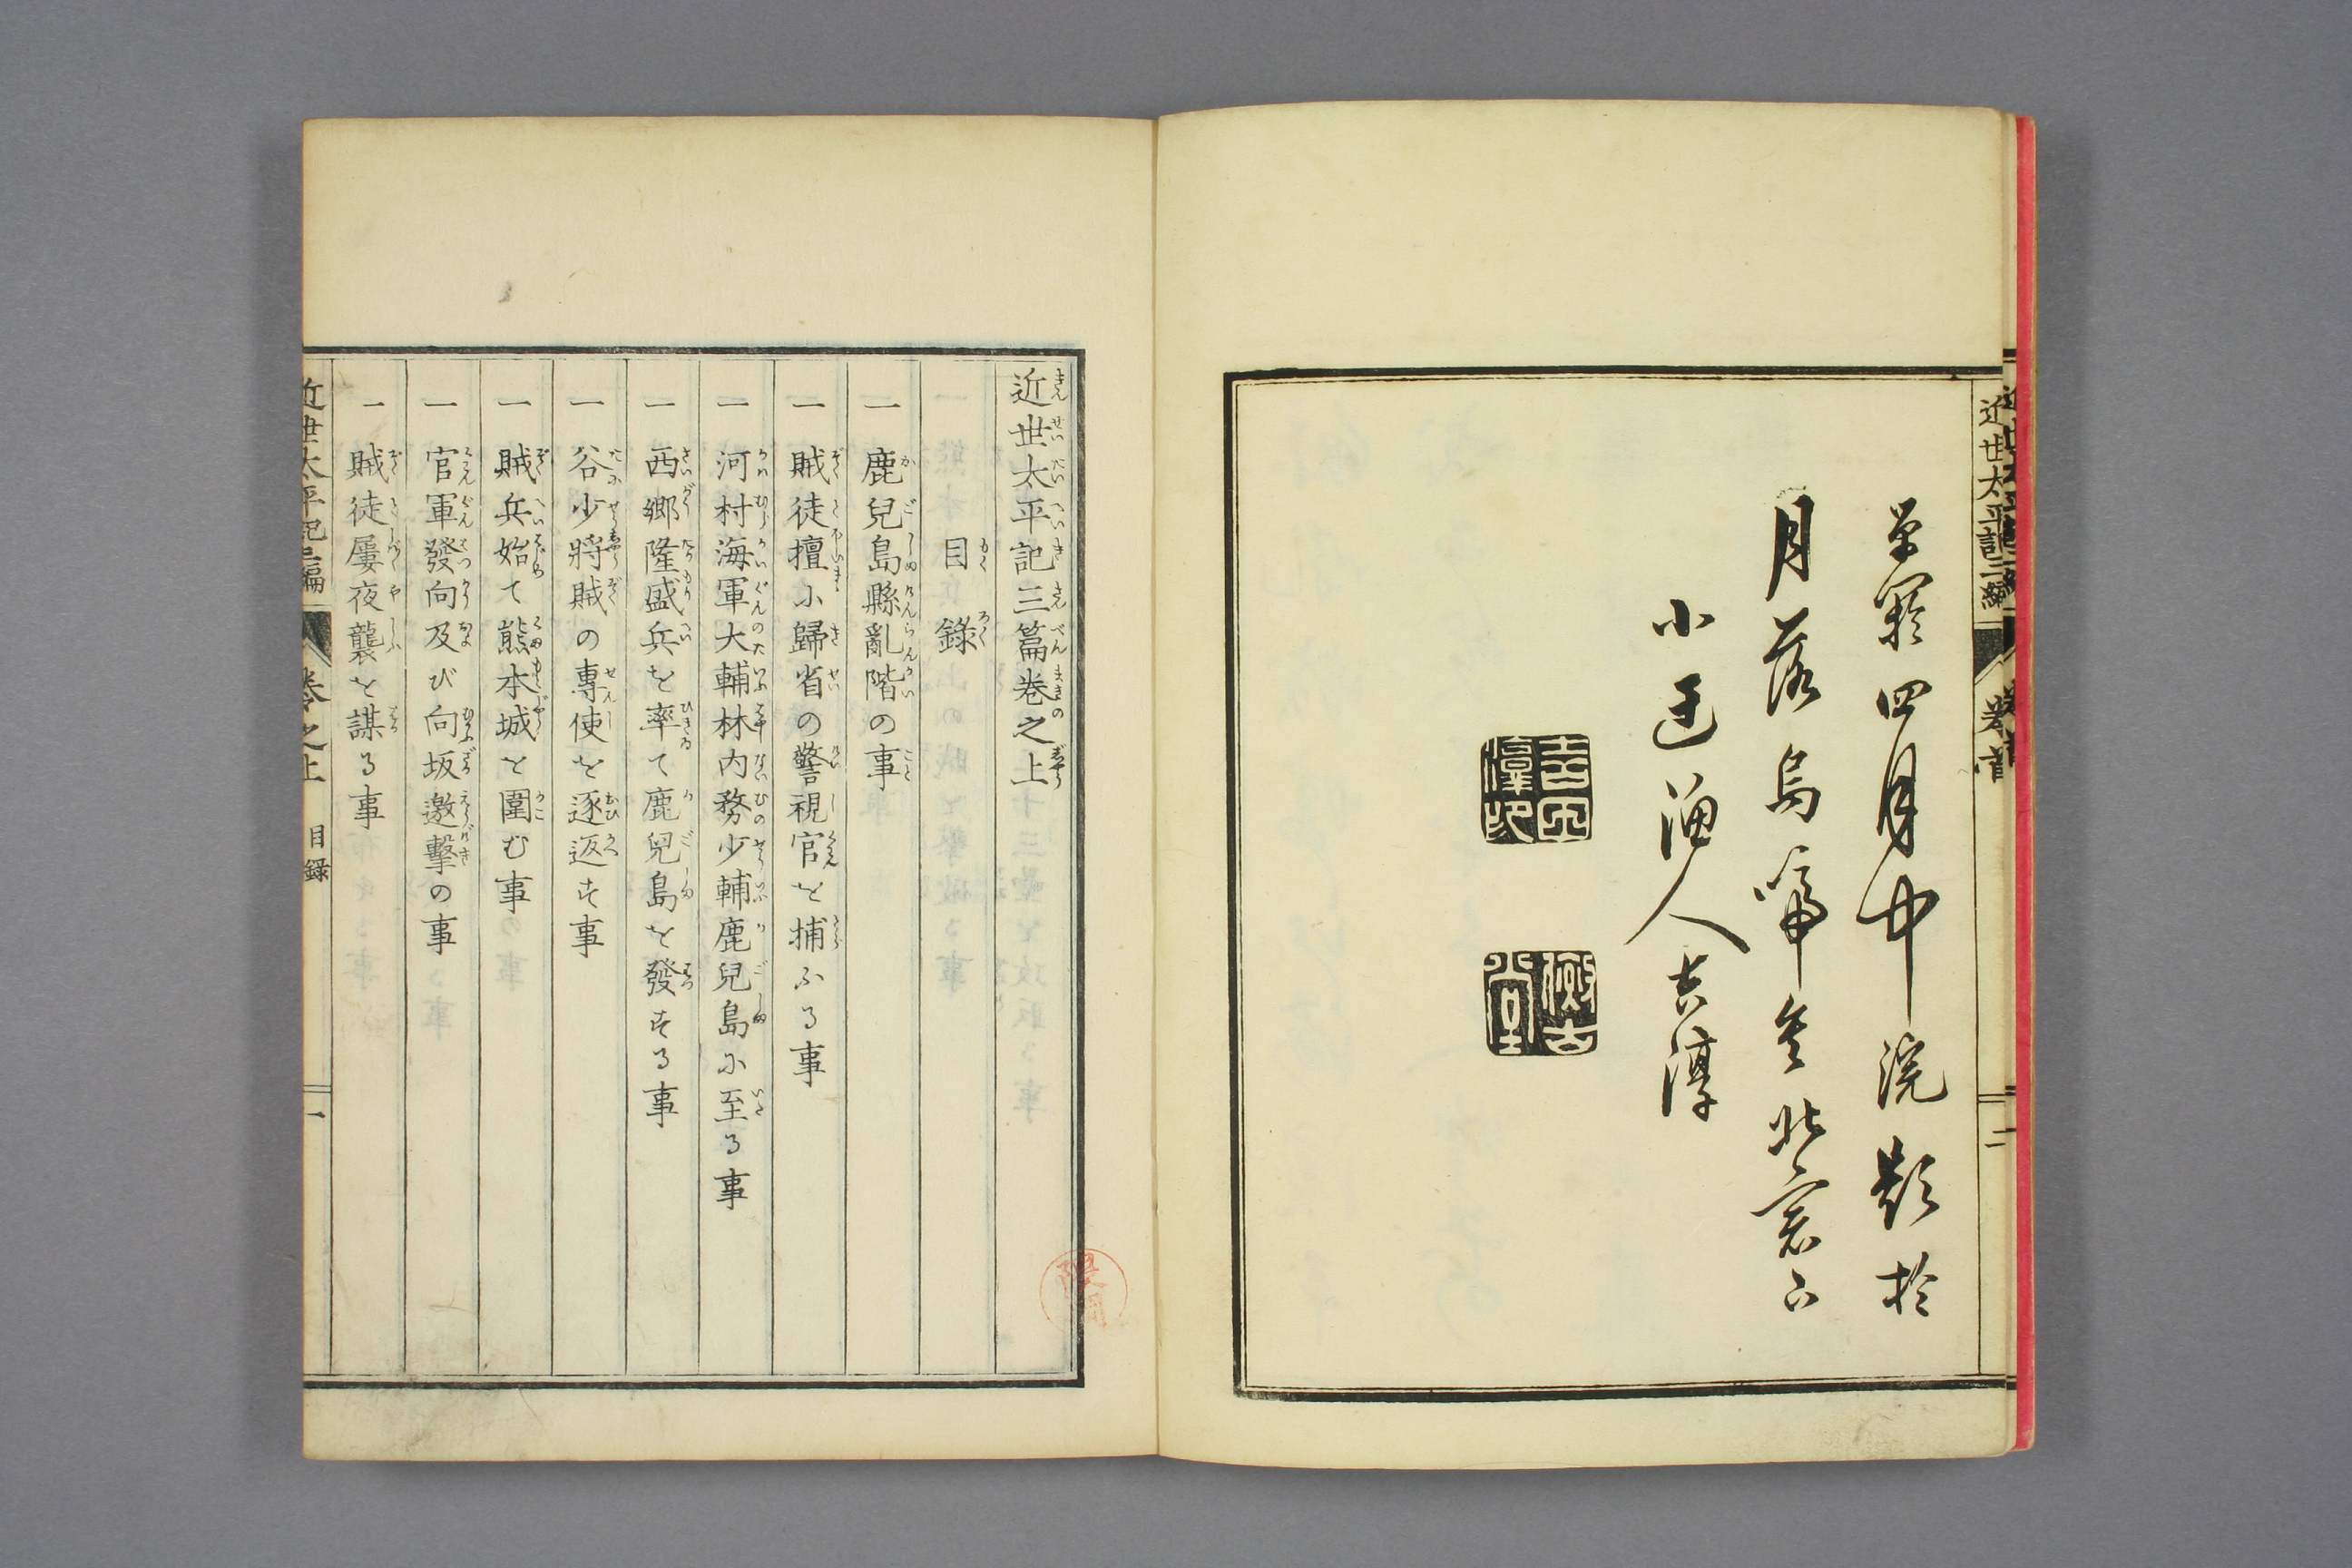 近世太平記三編
卷首
二
四月中浣題於
月落烏啼處北窓下
小迂漁人吉淳
近世太平記三篇卷之上
目錄
一 鹿兒島縣亂階の事
一 賊徒擅に歸省の警視官を捕ふる事
一 河村海軍大輔林内務少輔鹿兒島に至る事
一 西鄉隆盛兵を率て鹿兒島を發する事
一 谷少將賊の專使を逐返す事
一 賊兵始て熊本城を圍む事
一 官軍發向及び向坂邀擊の事
一 賊徒屢夜襲を謀る事
近世太平記三編
卷之上
目録
一